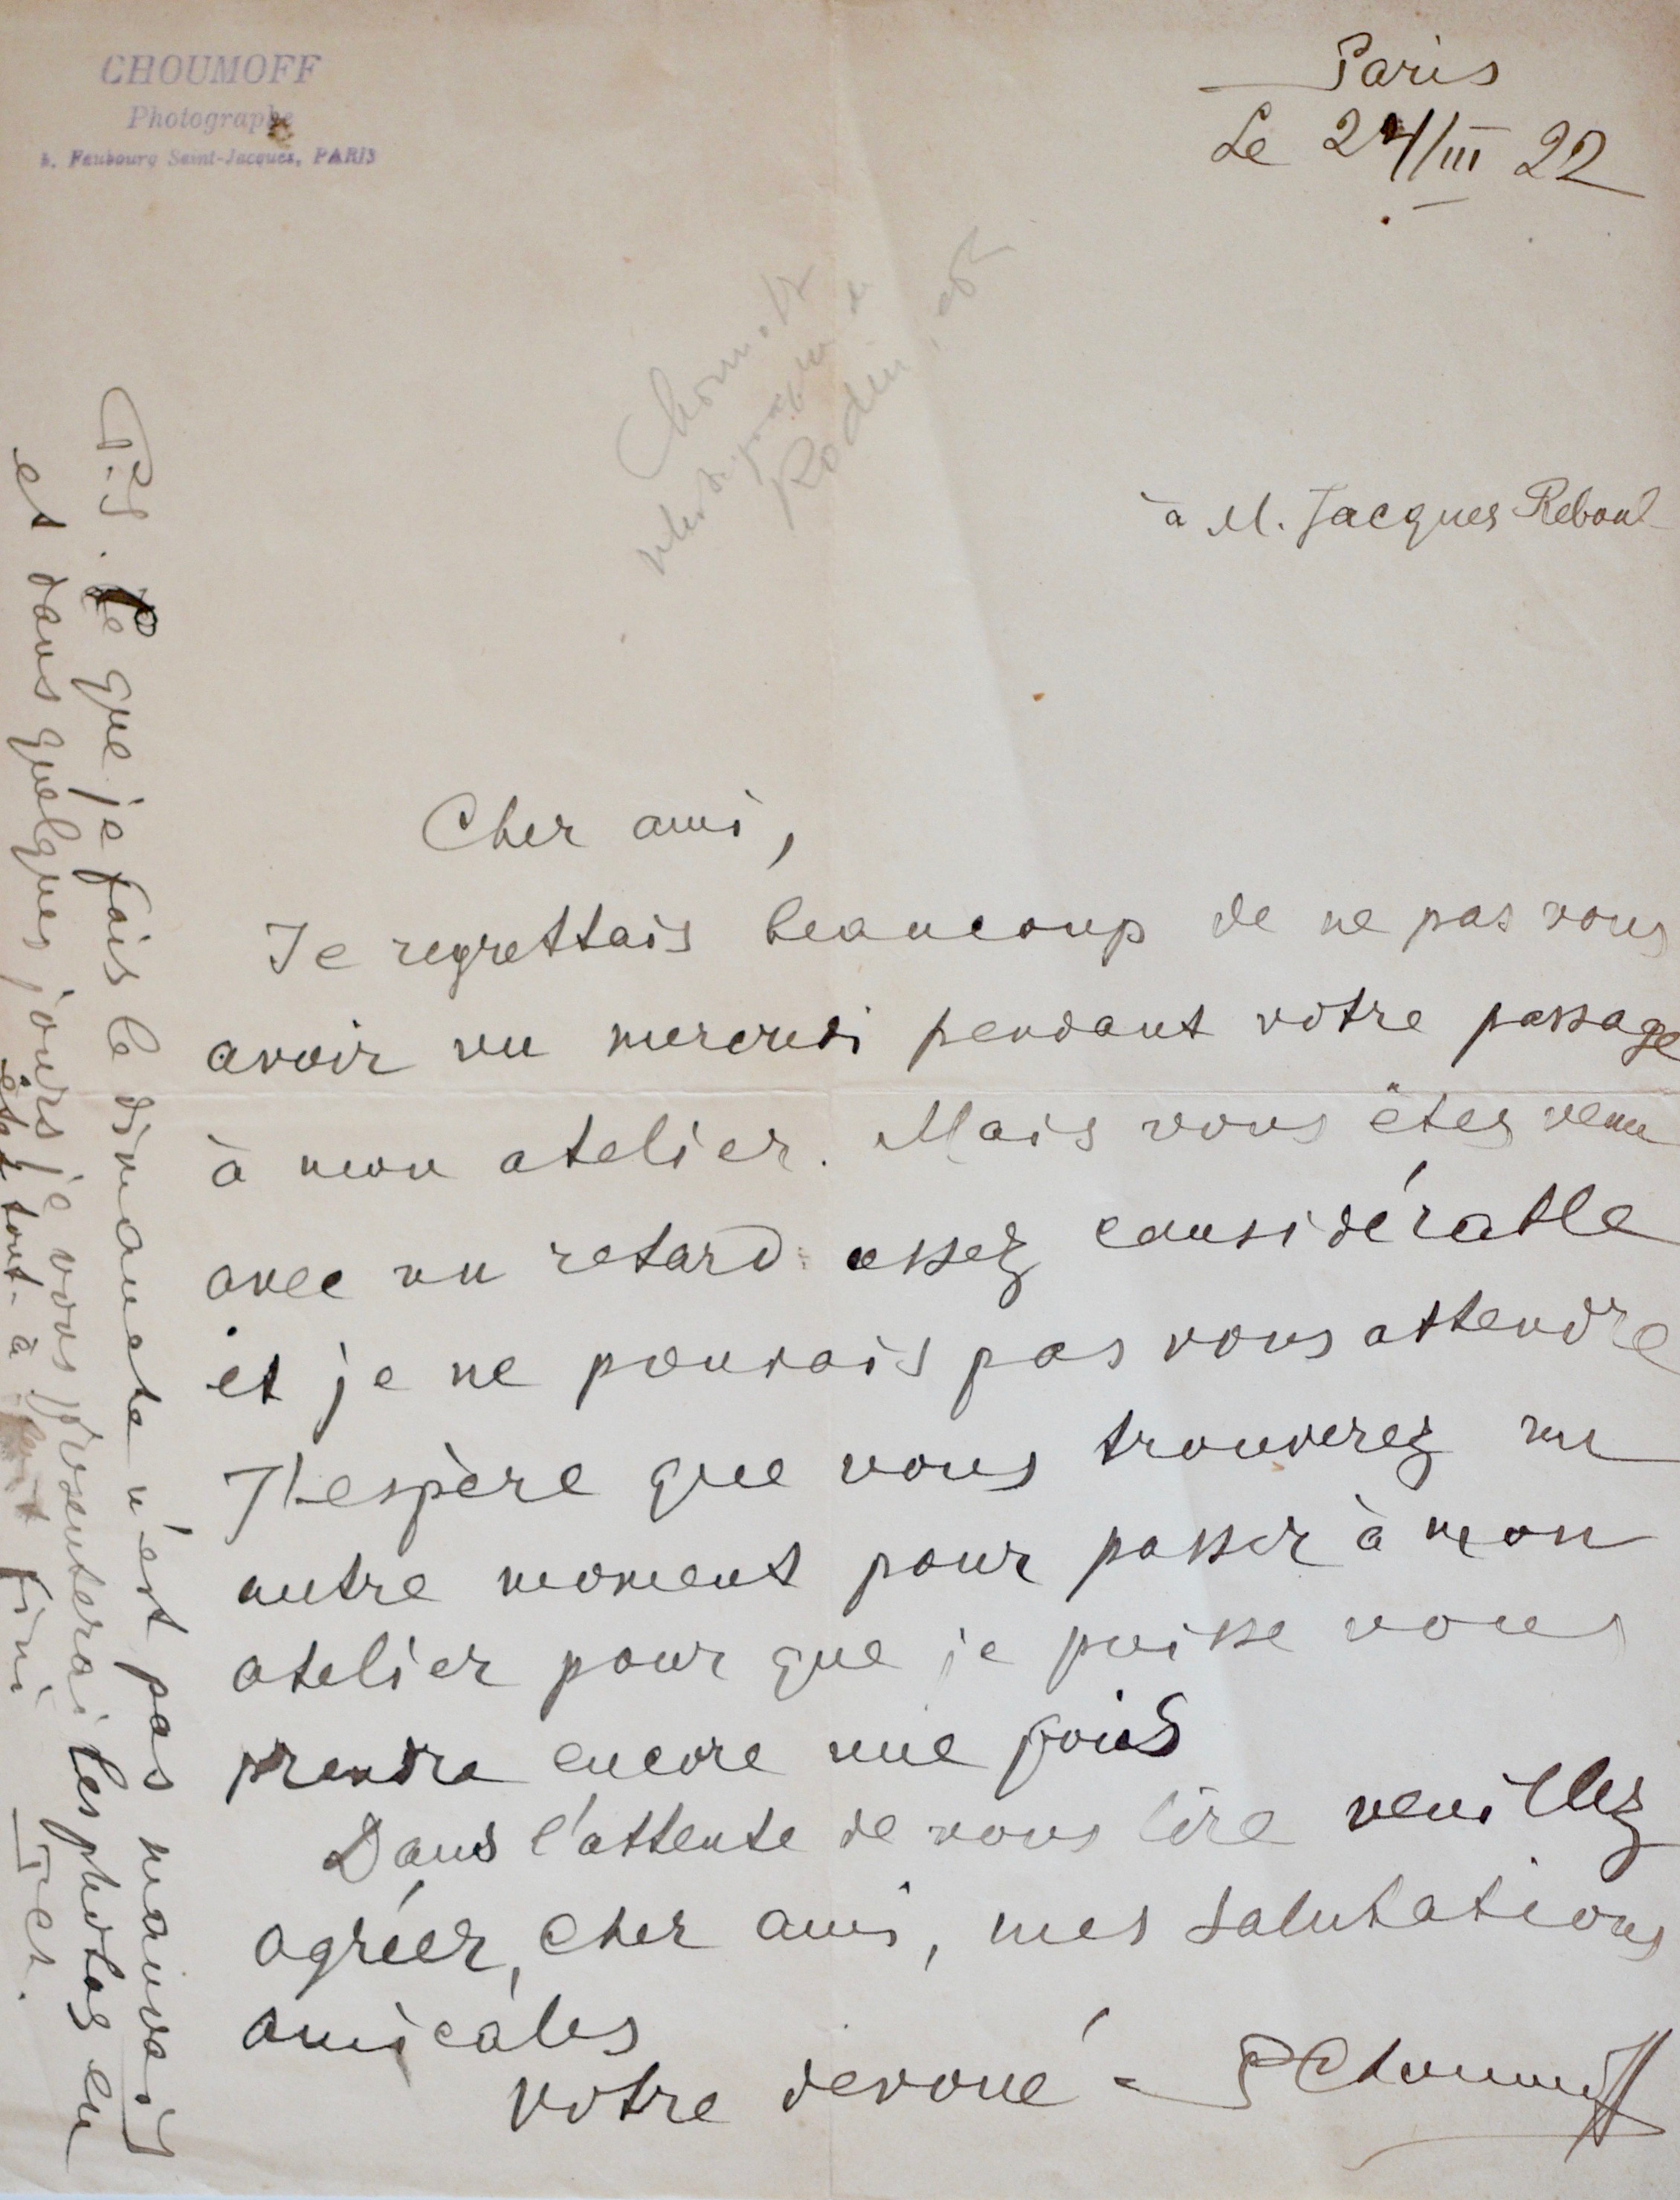 CHOUMOFF
Photographe
5, Faubourg Saint-Jacques, PARIS
Paris
Le 24/III 22
Choumoff
Rodin
à M. Jacques Reboul
Cher ami,
Je regrettais beaucoup de ne pas vous
avoir vu mercredi pendant votre passage
à mon atelier. Mais vous êtes venu
avec un retard assez considérable
et je ne pouvais pas vous attendre
J'espère que vous trouverez un
autre moment pour passer à mon
atelier pour que je puisse vous
prendre encore une fois
Dans l'attente de vous lire veuillez
agréer, cher ami, mes salutations
amicales
votre devoué - P Choumoff
P.S. Ce que je fais le dimanche n'est pas mauvais
et dans quelques jours je vous présenterai les photos en
état tout-à fait fini